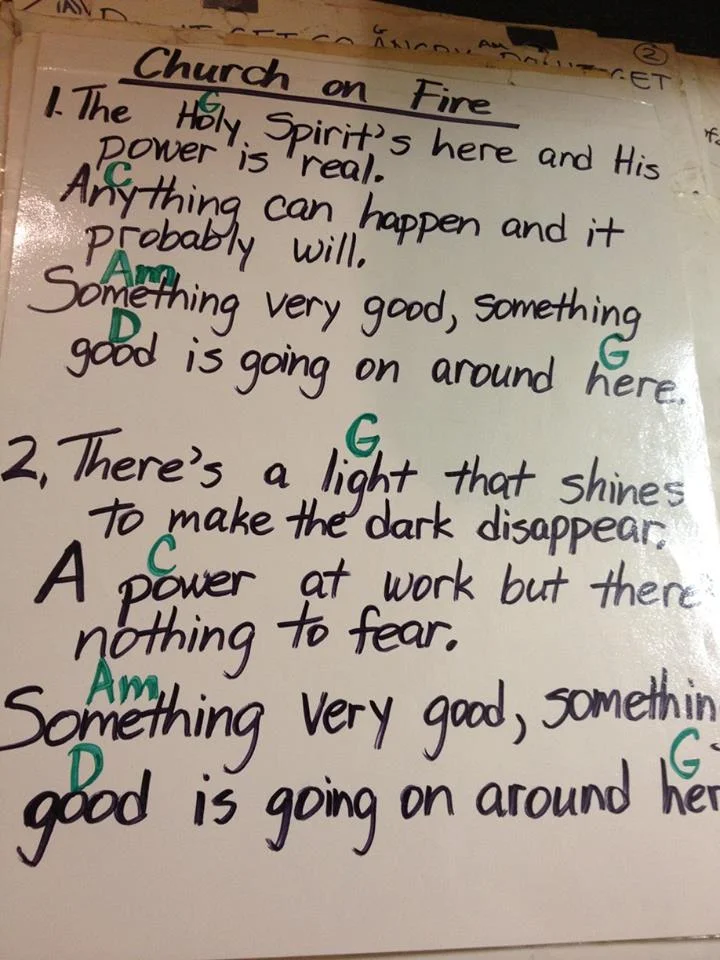 ②
GET
Church on Fire
G
1. The Holy Spirit's here and His
power is real.
C
Anything can happen and it
probably will.
Am
Something very good, something
D G
good is going on around here.
G
2, There's a light that shines
to make the dark disappear.
C
A power at work but there
nothing to fear.
Am
Something very good, somethin
D G
good is going on around her